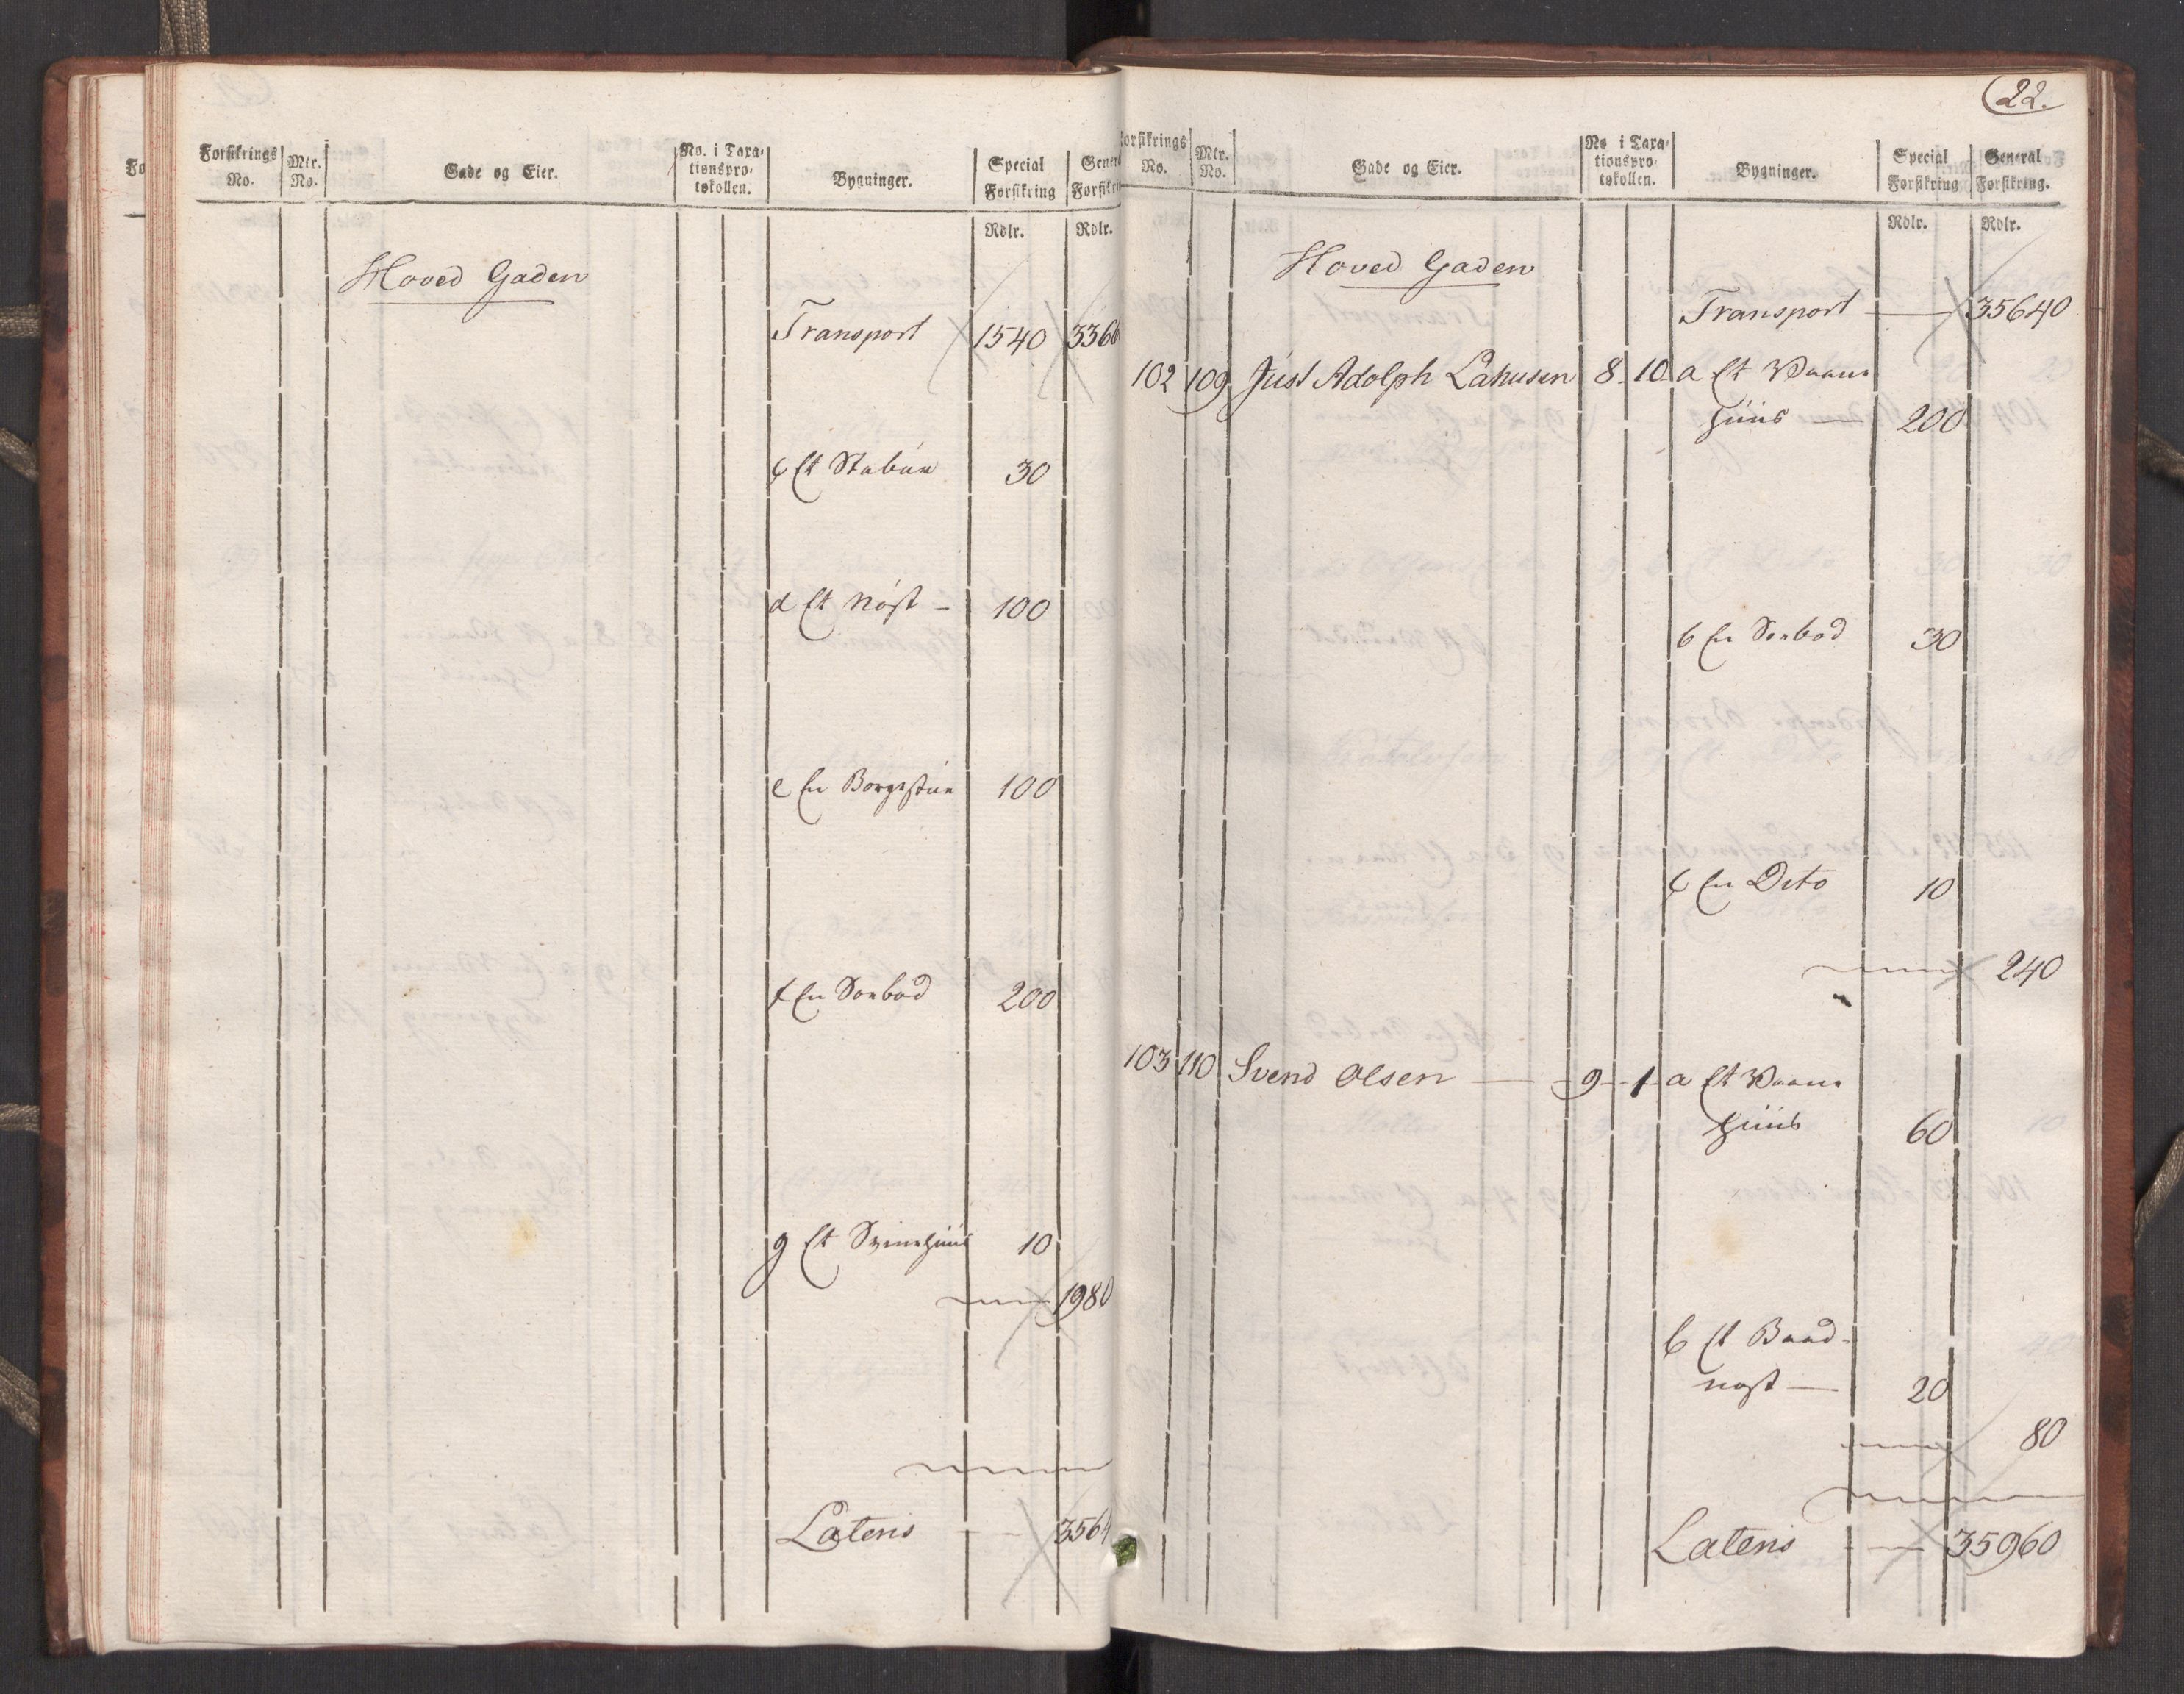 Forsikrings No. Mtr. No. Gade og Eier. No. i Taxationsprotokollen. Bygninger. Special Forsikring General Forsikring
Rdlr. Rdlr.
Hoved Gaden
Transport 1540 3366
c Et Stabur 30
d Et Nøst – 100
e En Borgestue 100
f En Søebod 200
g Et Svinehuus 10
1980
Lateris - - 3564
22.
Forsikrings No. Mtr. No. Gade og Eier. No i Taxationsprotokollen. Bygninger. Special Forsikring General Forsikring.
Rdlr. Rdlr.
Hoved Gaden
Transport — 35640
102 109 Just Adolph Lahusen 8 10 a Et Vaane
huus — 200
b En Søebod 30
c En Dito 10
240
103 110 Svend Olsen — 9 - 1 a Et Vaane
huus 60
b Et Baad-
nøst — 20
80
Lateris - — 35960